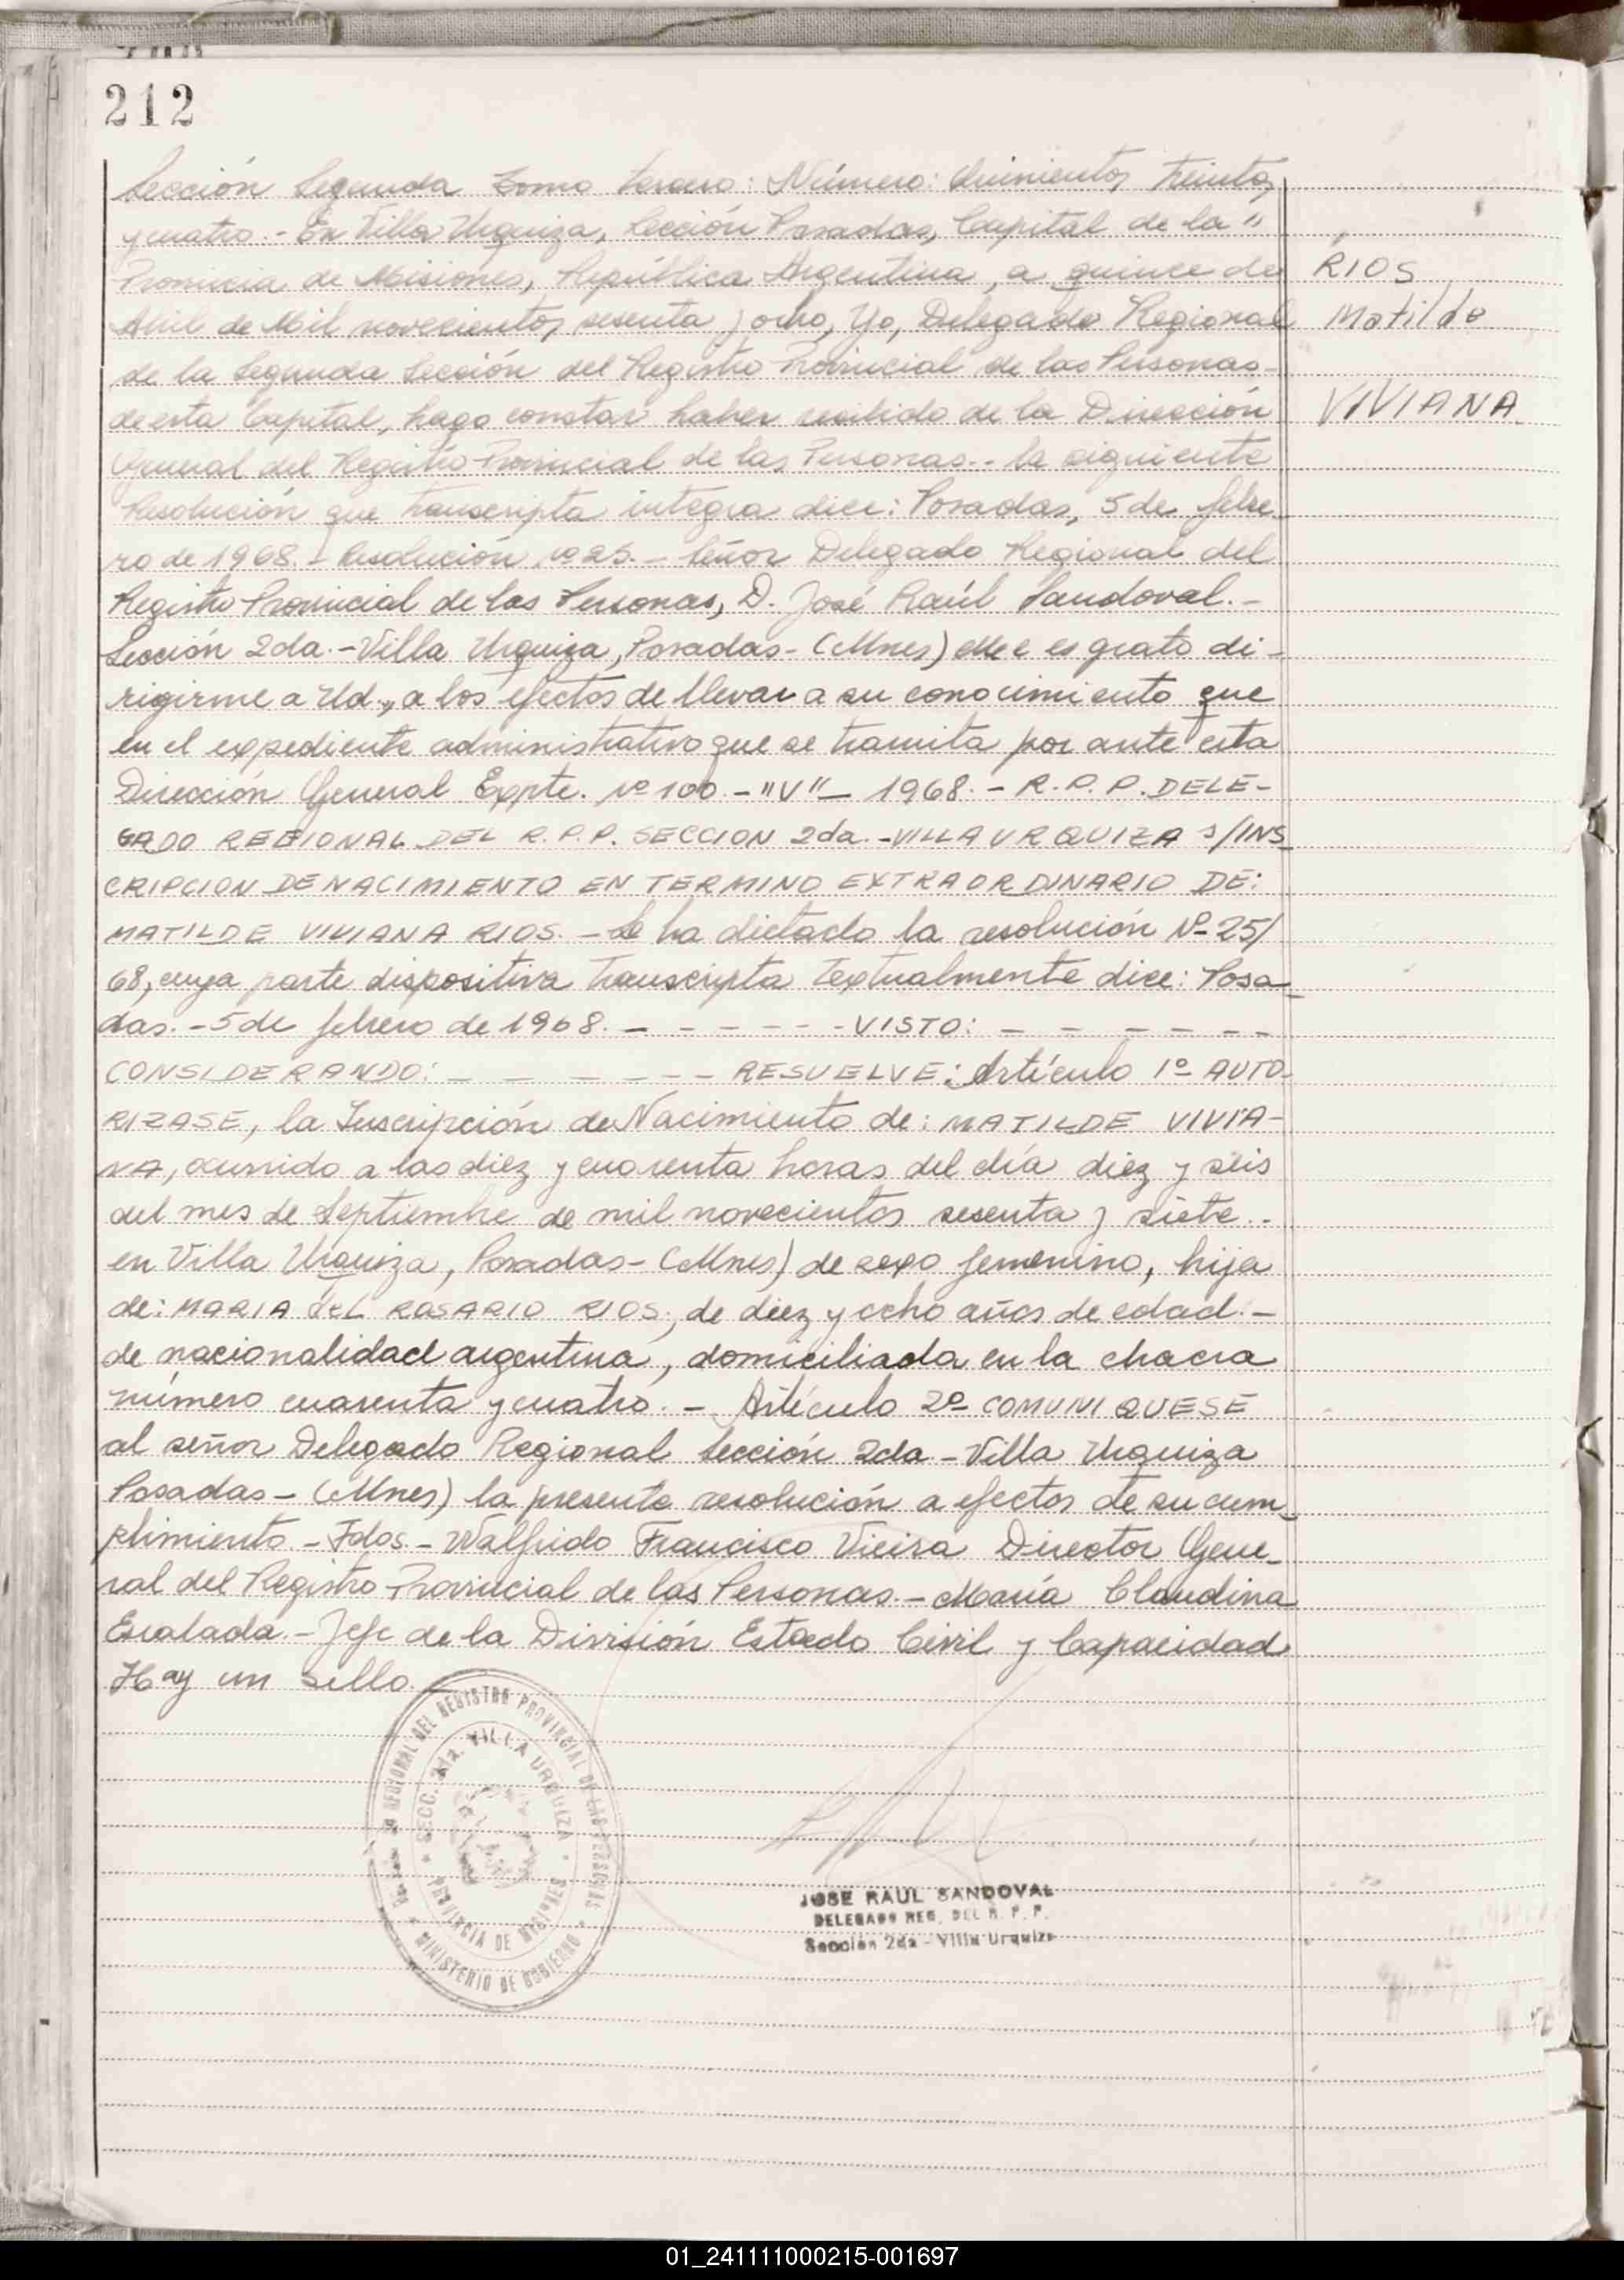 212
Sección Segunda Tomo Tercero: Número: Quinientos treinta
y cuatro.- En Villa Urquiza, Sección Posadas, Capital de la "
Provincia de Misiones, República Argentina, a quince de
Abril de Mil novecientos sesenta y ocho, Yo, Delegado Regional
de la Segunda Sección del Registro Provincial de las Personas-
de esta Capital, hago constar haber recibido de la Dirección
General del Registro Provincial de las Personas.- la siguiente
Resolución que transcripta integra dice: Posadas, 5 de febre-
ro de 1968.- Resolución nº 25.- Señor Delegado Regional del
Registro Provincial de las Personas, D. José Raúl Sandoval.-
Sección 2da.- Villa Urquiza, Posadas- (Mnes) Me es grato di-
rigirme a Ud., a los efectos de llevar a su conocimiento que
en el expediente administrativo que se tramita por ante esta
Dirección General Expte. nº 100.- "V" - 1968.- R.P.P. DELE-
GADO REGIONAL DEL R.P.P. SECCION 2da.- VILLA URQUIZA s/INS
CRIPCION DE NACIMIENTO EN TERMINO EXTRAORDINARIO DE:
MATILDE VIVIANA RIOS.- Se ha dictado la resolución Nº 25/
68, cuya parte dispositiva transcripta textualmente dice: Posa-
das.- 5 de febrero de 1968. - - - - - - VISTO: - - - - - -
CONSIDERANDO: - - - - - - RESUELVE: Artículo 1º AUTO-
RIZASE, la Inscripción de Nacimiento de: MATILDE VIVIA-
NA, ocurrido a las diez y cuarenta horas del día diez y seis
del mes de Septiembre de mil novecientos sesenta y siete..
en Villa Urquiza, Posadas- (Mnes) de sexo femenino, hija
de: MARIA dEL ROSARIO RIOS; de diez y ocho años de edad.-
de nacionalidad argentina, domiciliada en la chacra
número cuarenta y cuatro.- Artículo 2º COMUNIQUESE
al señor Delegado Regional Sección 2da.- Villa Urquiza
Posadas- (Mnes) la presente resolución a efectos de su cum-
plimiento.- Fdos.- Walfrido Francisco Vieira Director Gene-
ral del Registro Provincial de las Personas.- María Claudina
Escalada.- Jefe de la División Estado Civil y Capacidad
Hay un sello.-
RIOS
Matilde
VIVIANA
REGIONAL DEL REGISTRO PROVINCIAL DE LAS PERSONAS
SECC. 2da. VILLA URQUIZA
PROVINCIA DE MISIONES
MINISTERIO DE GOBIERNO
JOSE RAUL SANDOVAL
DELEGADO REG. DEL R. P. P.
Sección 2da - Villa Urquiza
01_241111000215-001697